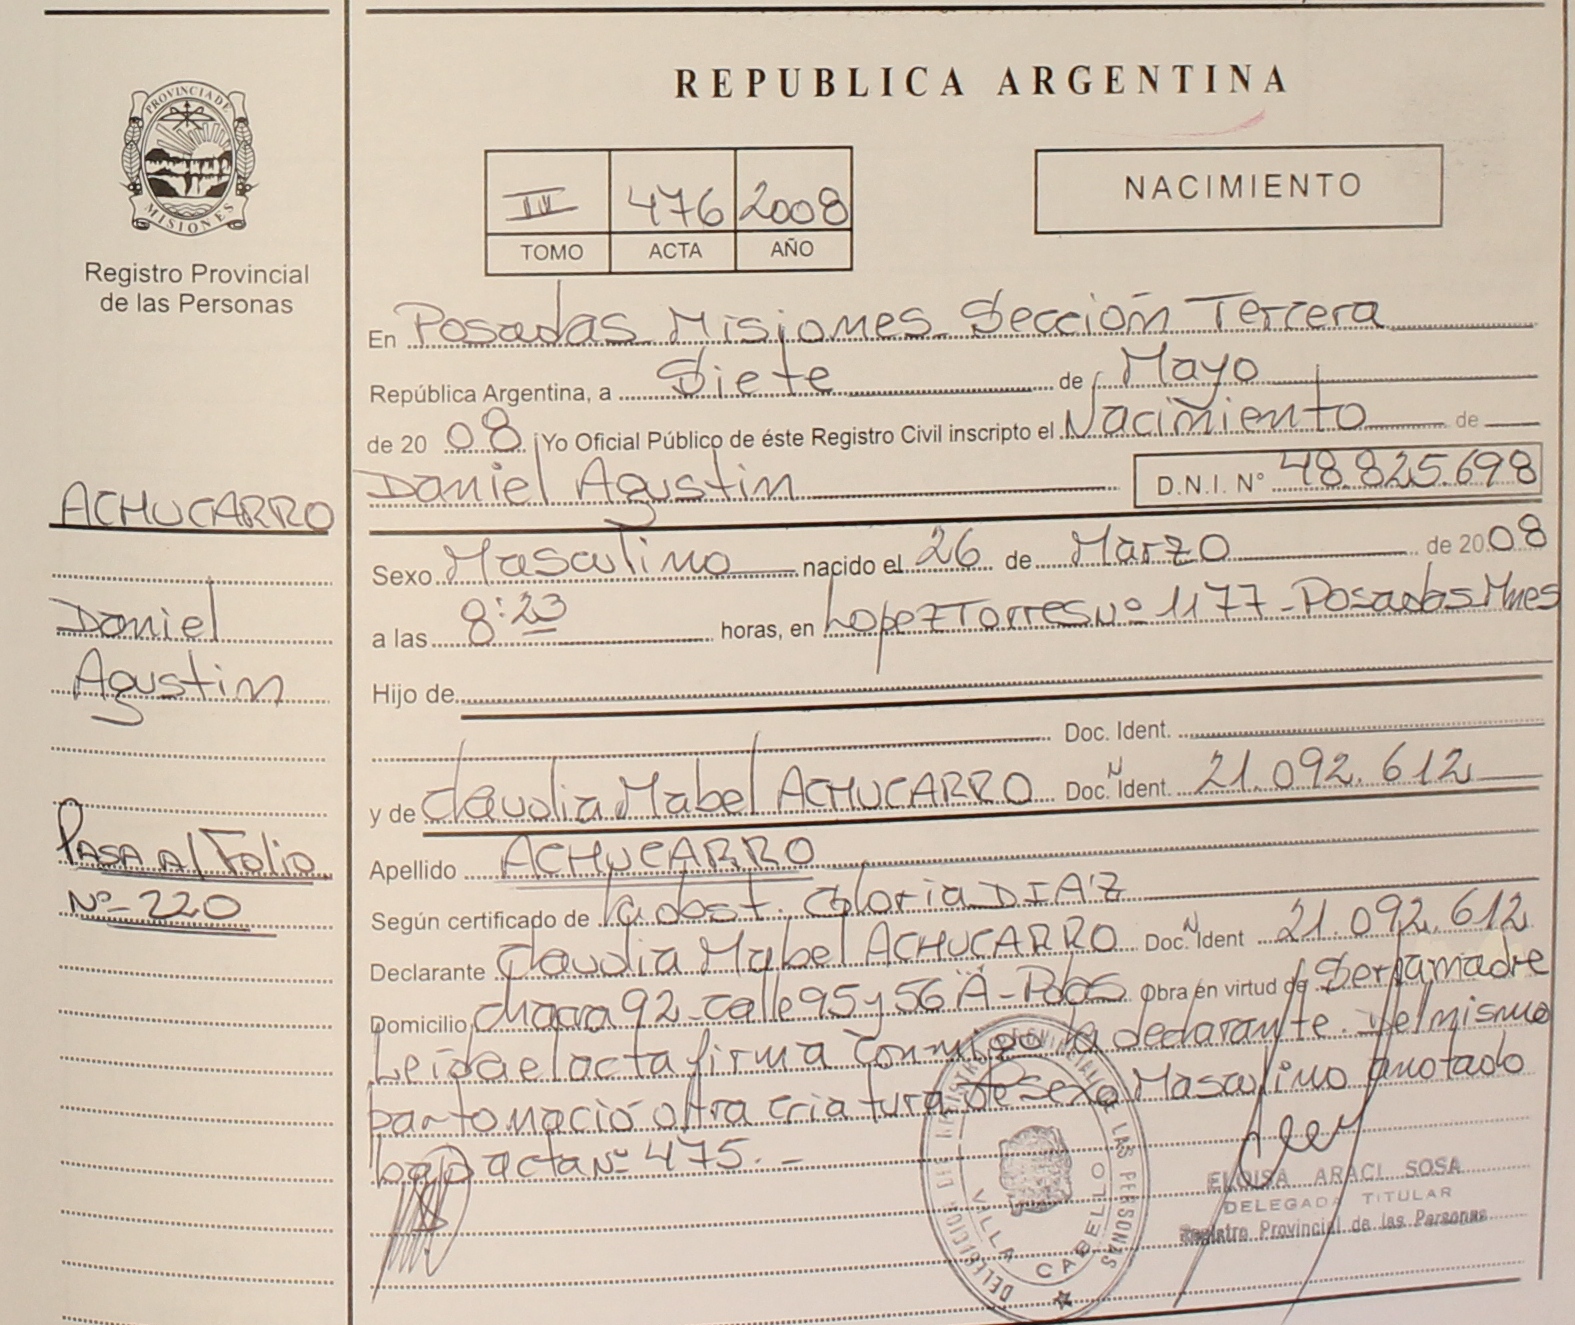 PROVINCIA DE
MISIONES
Registro Provincial
de las Personas
ACHUCARRO
Daniel
Agustin
Pasa al Folio
Nº 220
REPUBLICA ARGENTINA
476 2008
TOMO ACTA AÑO
NACIMIENTO
En Posadas Misiones Sección Tercera
República Argentina, a Siete de Mayo
de 2008 Yo Oficial Público de éste Registro Civil inscripto el Nacimiento de
Daniel Agustin D.N.I. N° 48.825.698
Sexo Masculino nacido el 26 de Marzo de 2008
a las 8:23 horas, en Lopez Torres Nº 1177 - Posadas Mnes
Hijo de
Doc. Ident.
y de Claudia Mabel ACHUCARRO Doc. N Ident. 21.092.612
Apellido ACHUCARRO
Según certificado de la obst. Gloria DIAZ
Declarante Claudia Mabel ACHUCARRO Doc. N Ident 21.092.612
Domicilio chacra 92 - calle 95 y 56 A - Pdas Obra en virtud de Ser la madre
Leída el acta firma conmigo la declarante. Del mismo
parto nació otra criatura de sexo Masculino anotado
bajo acta Nº 475. -
VILLA CABELLO
ELOISA ARACI SOSA
DELEGADA TITULAR
Registro Provincial de las Personas